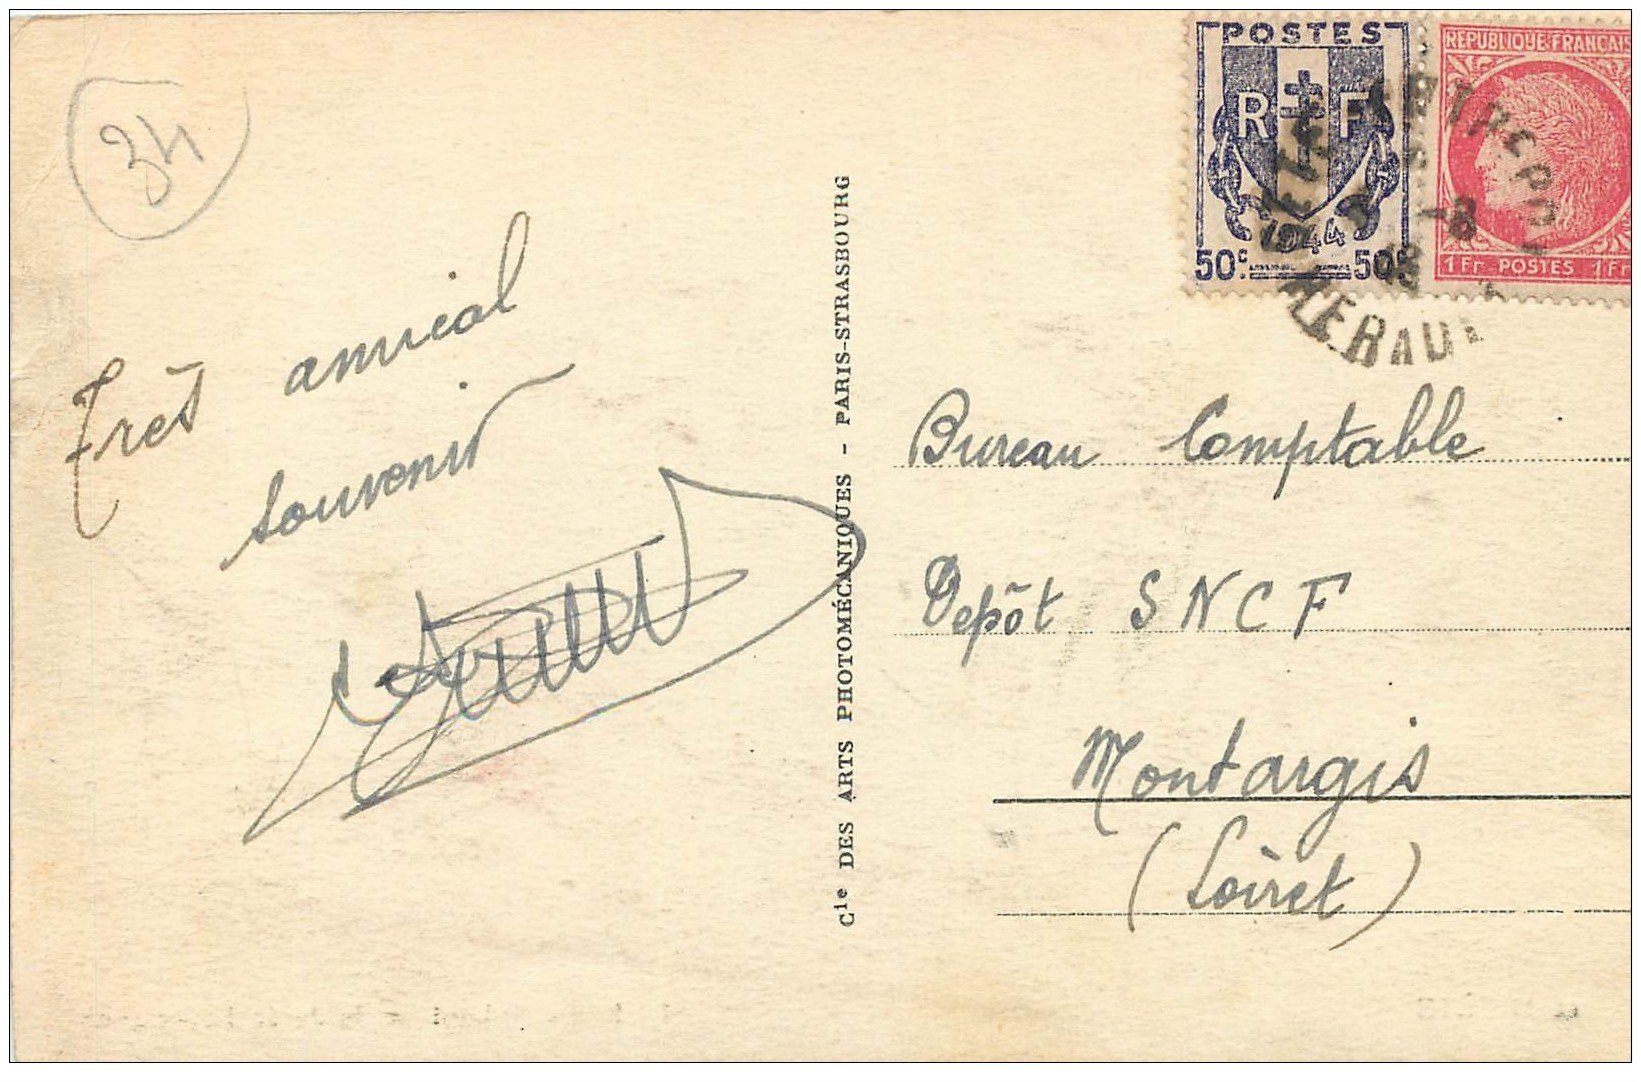 34
POSTES
R F
1944
50c 50c
REPUBLIQUE FRANÇAIS
1 Fr POSTES 1 Fr
HERAULT
Très amical
souvenir
Cie DES ARTS PHOTOMÉCANIQUES - PARIS-STRASBOURG
Bureau Comptable
Depôt SNCF
Montargis
(Loiret)